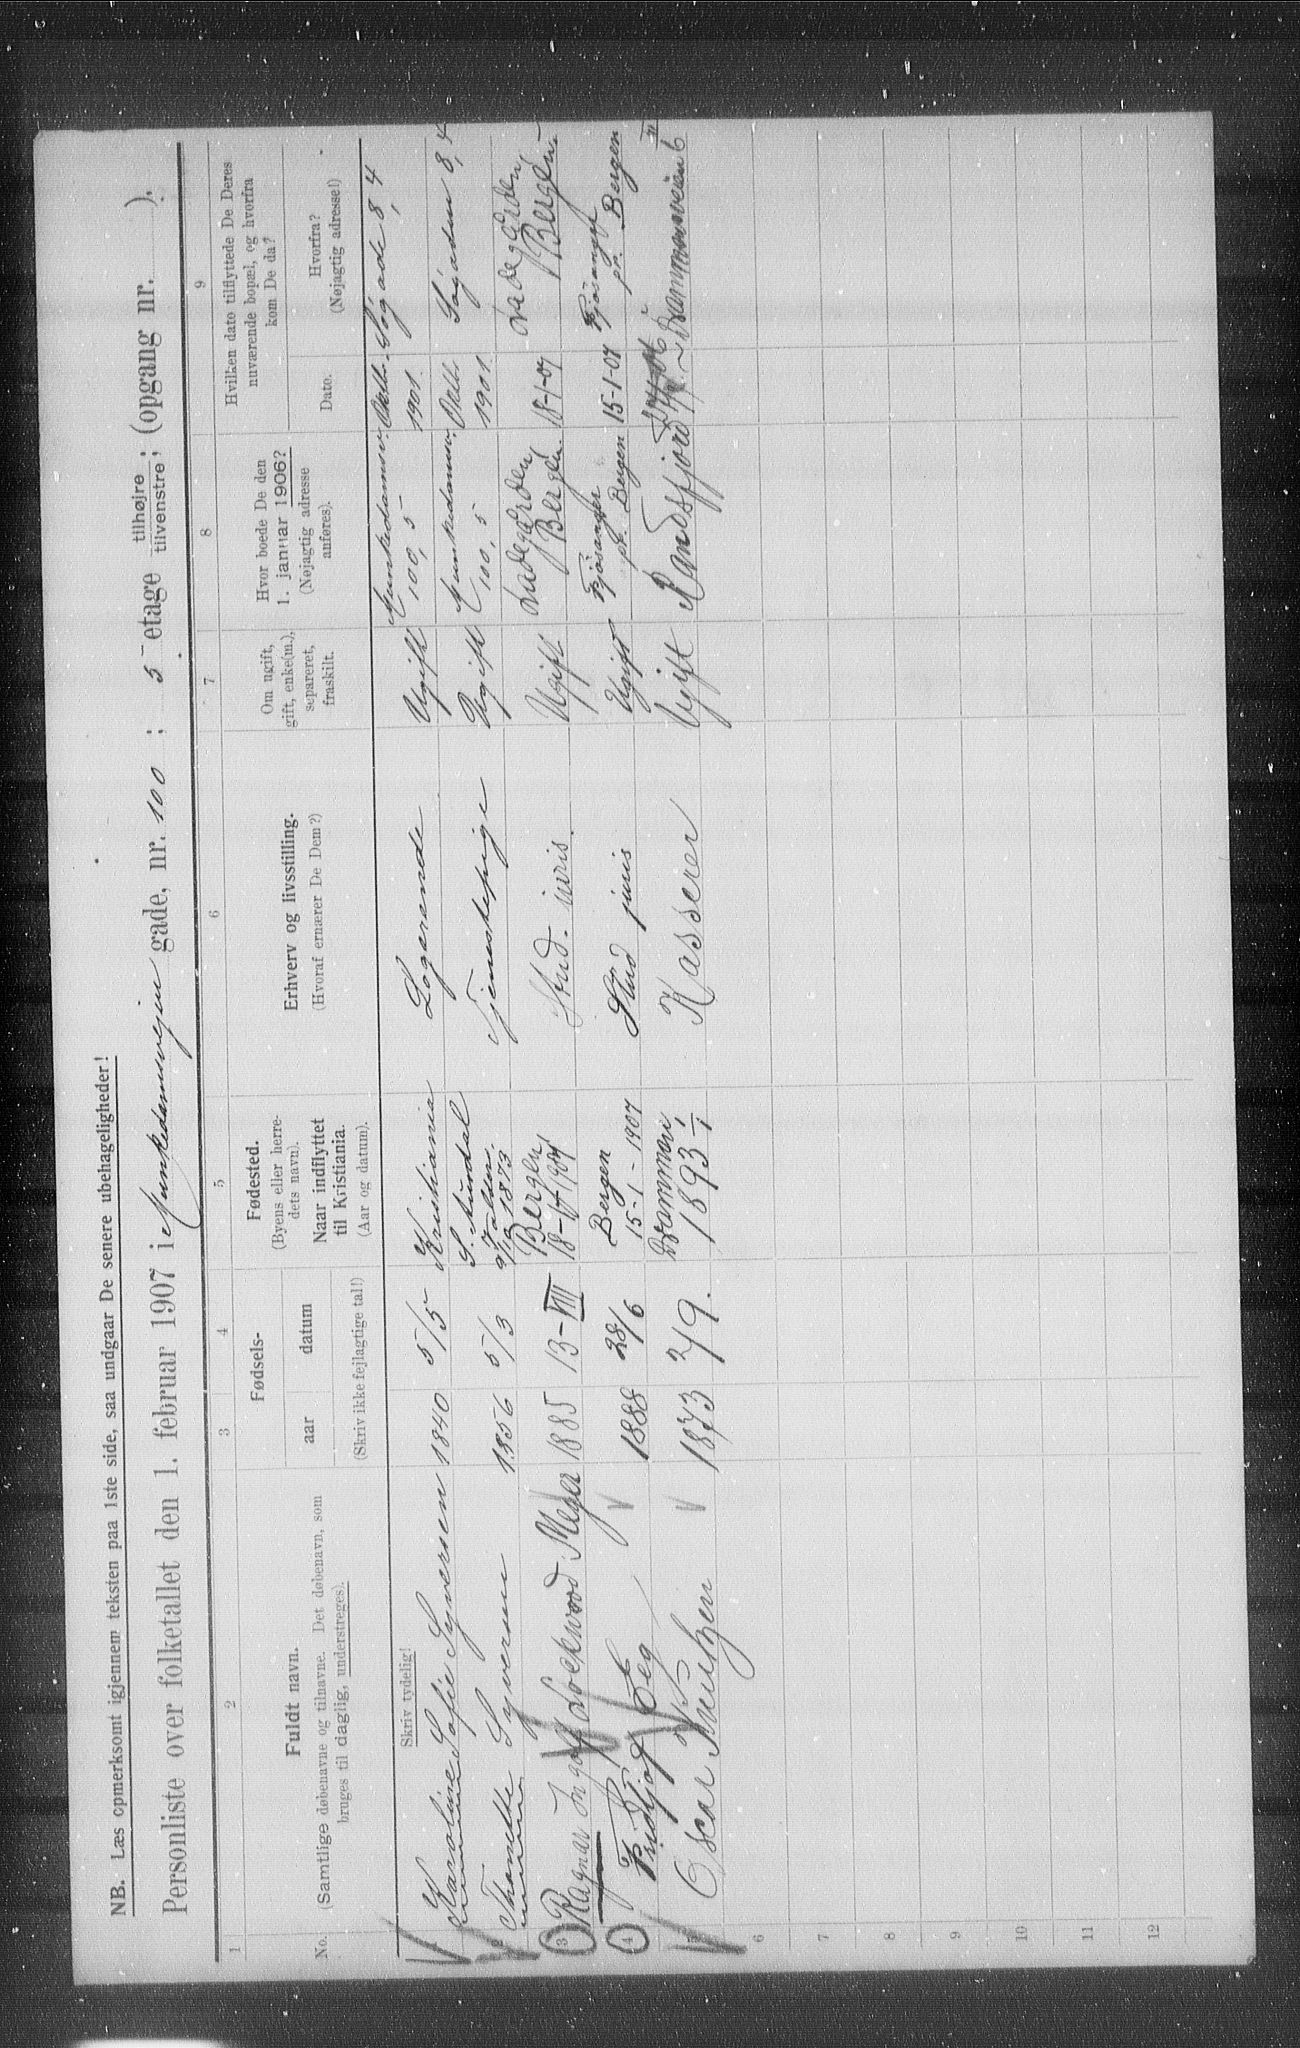 NB. Læs opmerksomt igjennem teksten paa 1ste side, saa undgaar De senere ubehageligheder!
Personliste over folketallet den 1. februar 1907 i Munkedamsvejen gade, nr. 100 ; 5 etage tilhøjre tilvenstre ; (opgang nr. ).
1 2 3 4 5 6 7 8 9
No.
Fuldt navn.
(Samtlige døbenavne og tilnavne. Det døbenavn, som
bruges til daglig, understreges).
Fødsels-
aar datum
(Skriv ikke fejlagtige tal!)
Fødested.
(Byens eller herre-
dets navn).
Naar indflyttet
til Kristiania.
(Aar og datum).
Erhverv og livsstilling.
(Hvoraf ernærer De Dem?)
Om ugift,
gift, enke(m.),
separeret,
fraskilt.
Hvor boede De den
1. januar 1906?
(Nøjagtig adresse
anføres).
Hvilken dato tilflyttede De Deres
nuværende bopæl, og hvorfra
kom De da?
Dato.
Hvorfra?
(Nøjagtig adresse!)
Skriv tydelig!
Karoline Sofie Syversen 1840 5/5 Kristiania Logerende Ugift Munkedamsv. 100, 5 Oktb. 1901. Søgade 8, 4
Thomette Syversen 1856 5/3 S. Aurdal Valders 1873 Tjenestepige Ugift Munkedamsv. 100, 5 Oktb. 1901. Søgaden 8, 4
3 Ragnar Ingolf Lockwood Meyer 1885 13-VIII Bergen 18-1-1907 Stud. juris. Ugift Ladegården, Bergen. 18-1-07 Ladegården, Bergen.
4 Fridtjof Eeg 1888 28/6 Bergen 15-1-1907 Stud juris Ugift Fjøsanger pr. Bergen 15-1-07 Fjøsanger pr. Bergen
5 Oscar Knutzen 1873 2/9. Drammen, 1893 1/1 Kasserer Ugift Randsfjord Drammensveien 6 II
6
7
8
9
10
11
12